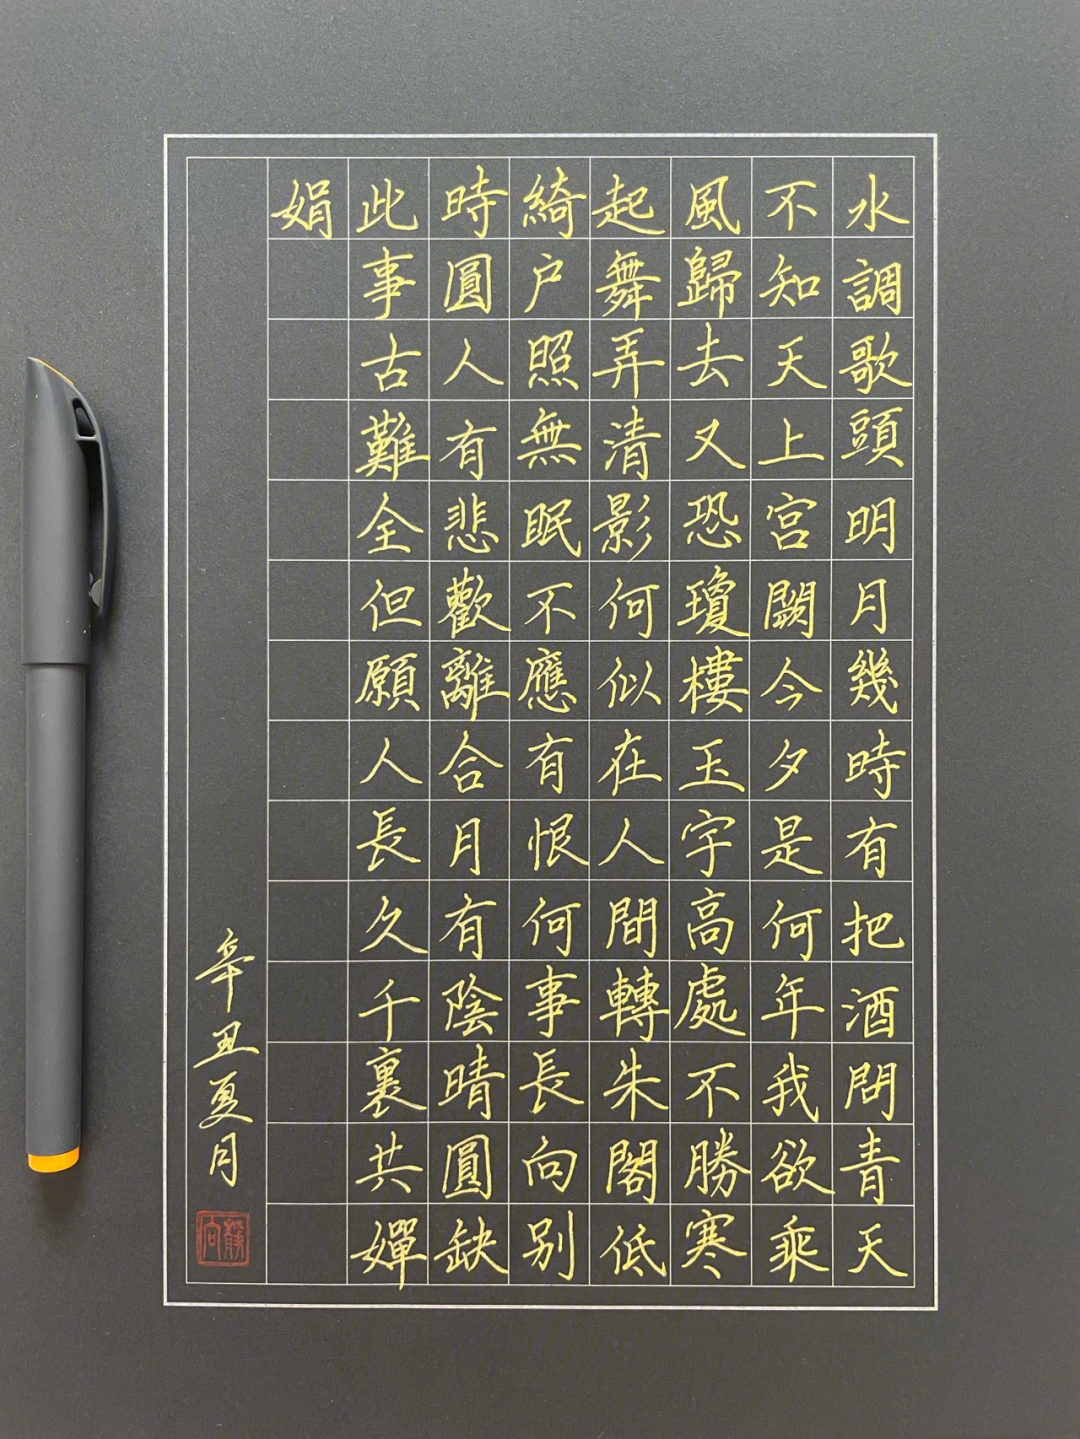 水調歌頭明月幾時有把酒問青天
不知天上宮闕今夕是何年我欲乘
風歸去又恐瓊樓玉宇高處不勝寒
起舞弄清影何似在人間轉朱閣低
綺户照無眠不應有恨何事長向別
時圓人有悲歡離合月有陰晴圓缺
此事古難全但願人長久千裏共嬋
娟
辛丑夏月